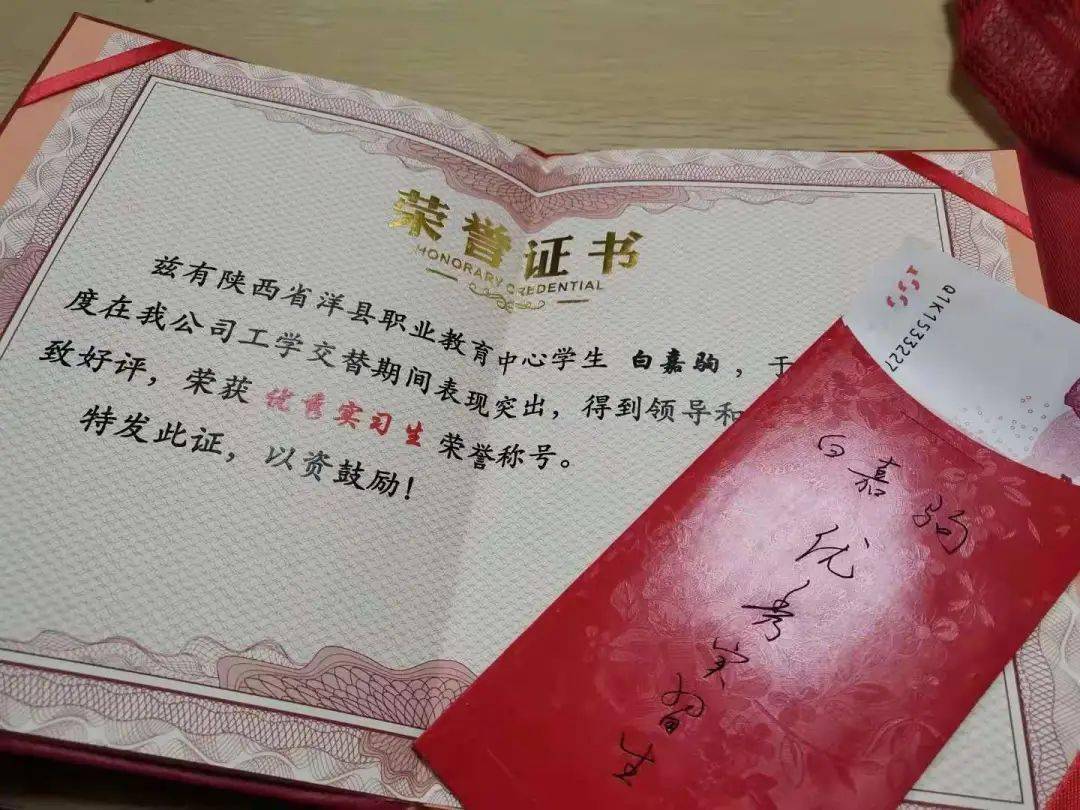 荣誉证书
HONORARY CREDENTIAL
兹有陕西省洋县职业教育中心学生 白嘉驹，于
度在我公司工学交替期间表现突出，得到领导和
致好评，荣获 优秀实习生 荣誉称号。
特发此证，以资鼓励！
Q1K1533227
白嘉驹
优秀实習生